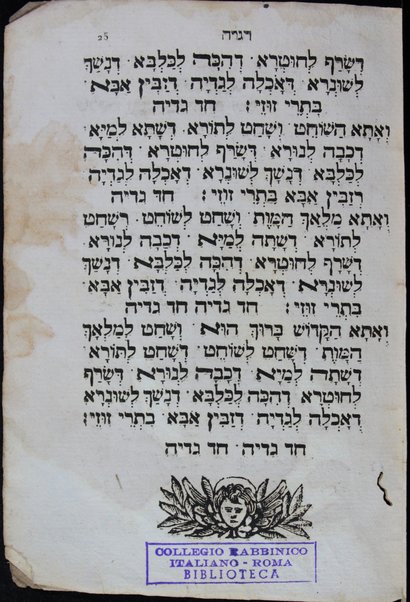 הגדה 25
דְשָׂרַף לְחוּטְרָא · דְהִכָּה לְכַלְבָּא · דְנָשַׁךְ
לְשׁוּנְרָא · דְאָכְלָה לְגַדְיָה · דְזַבִּין אַבָּא
בִּתְרֵי זוּזֵי : חד גדיה
וְאָתָא הַשּׁוֹחֵט · וְשָׁחַט לְתוֹרָא · דְשָׁתָא לְמַיָּא ·
דְכָבָה לְנוּרָא · דְשָׂרַף לְחוּטְרָא · דְהִכָּה
לְכַלְבָּא · דְנָשַׁךְ לְשׁוּנְרָא · דְאָכְלָה לְגַדְיָה
דְזַבִּין אַבָּא בִּתְרֵי זוּזֵי : חד גדיה
וְאָתָא מַלְאַךְ הַמָּוֶת · וְשָׁחַט לְשׁוֹחֵט · דְשָׁחַט
לְתוֹרָא · דְשָׁתָה לְמַיָּא · דְכָבָה לְנוּרָא ·
דְשָׂרַף לְחוּטְרָא · דְהִכָּה לְכַלְבָּא · דְנָשַׁךְ
לְשׁוּנְרָא · דְאָכְלָה לְגַדְיָה · דְזַבִּין אַבָּא ·
בִּתְרֵי זוּזֵי : חד גדיה חד גדיה
וְאָתָא הַקָּדוֹשׁ בָּרוּךְ הוּא · וְשָׁחַט לְמַלְאַךְ
הַמָּוֶת · דְשָׁחַט לְשׁוֹחֵט · דְשָׁחַט לְתוֹרָא ·
דְשָׁתָה לְמַיָּא · דְכָבָה לְנוּרָא · דְשָׂרַף
לְחוּטְרָא · דְהִכָּה לְכַלְבָּא · דְנָשַׁךְ לְשׁוּנְרָא
דְאָכְלָה לְגַדְיָה · דְזַבִּין אַבָּא · בִּתְרֵי זוּזֵי :
חד גדיה · חד גדיה
COLLEGIO RABBINICO
ITALIANO - ROMA
BIBLIOTECA